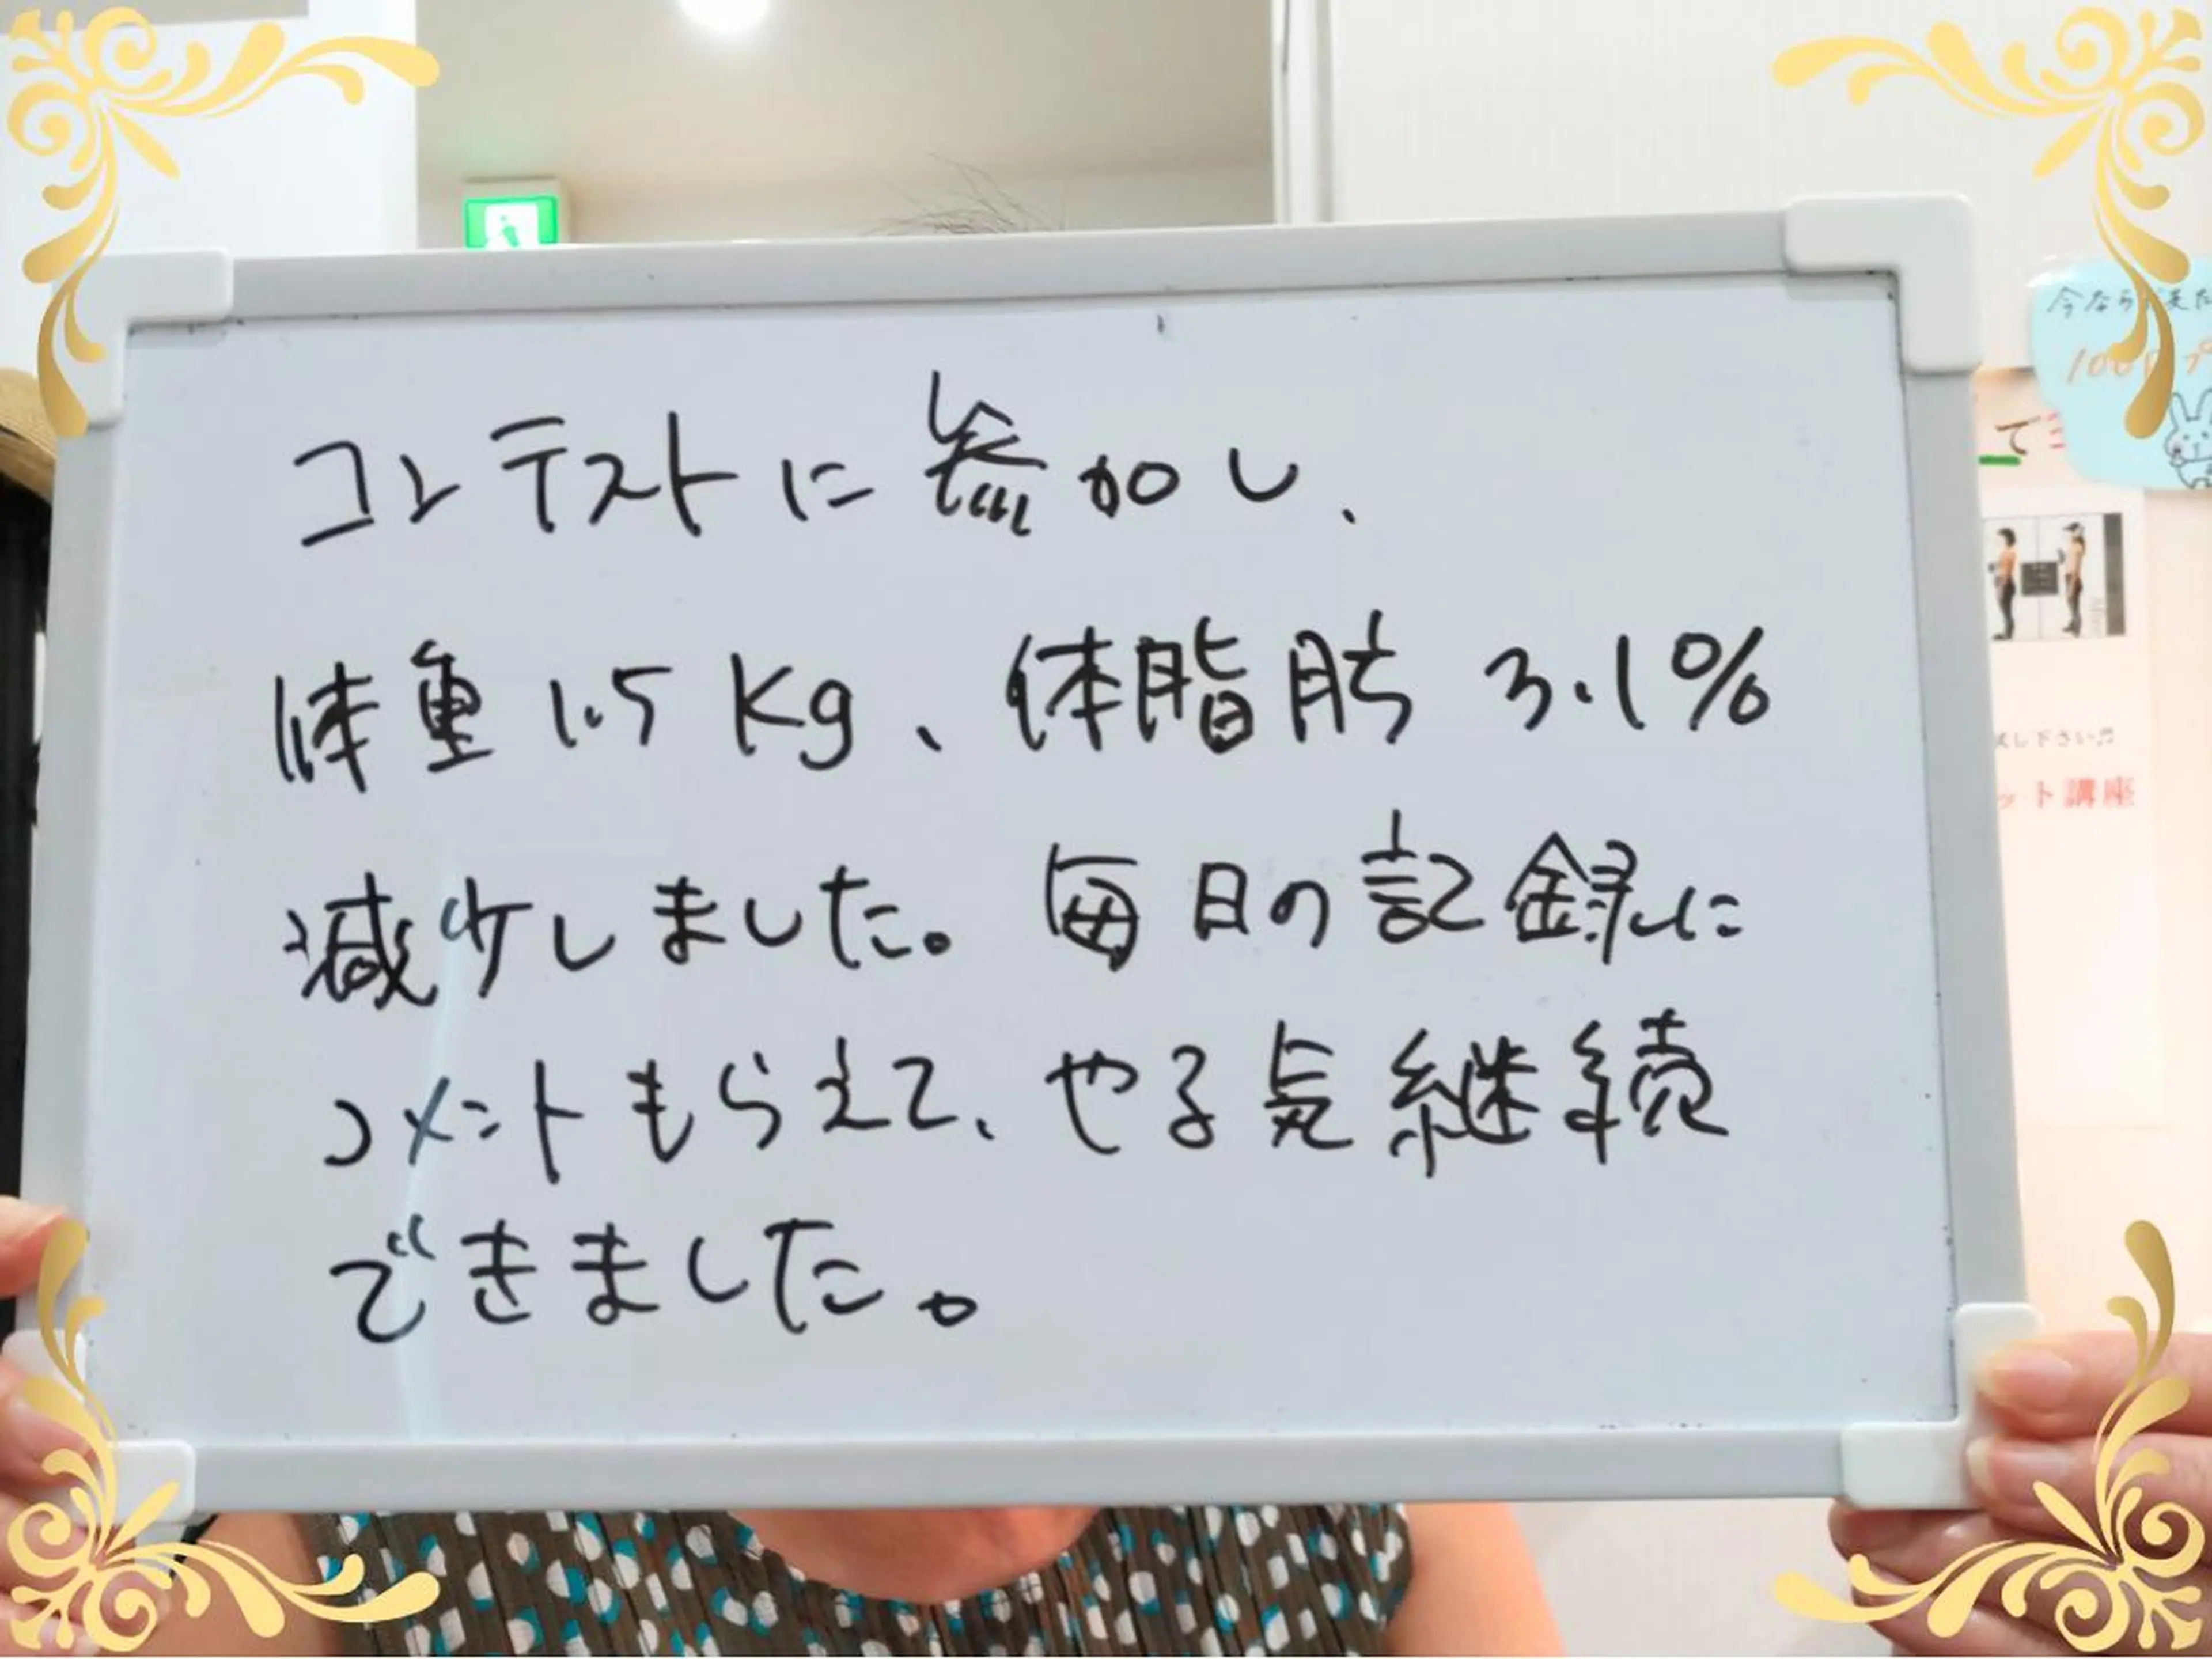 コンテストに参加し、
体重1.5Kg、体脂肪3.1%
減少しました。毎日の記録に
コメントもらえて、やる気継続
できました。
今なら
で
試し下さい♬
ット講座